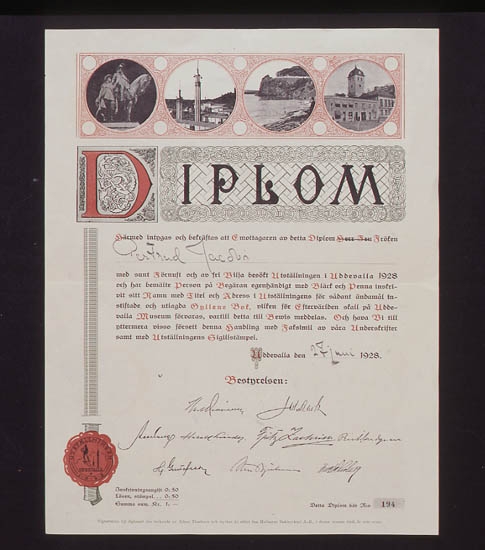 DIPLOM
Härmed intygas och bekräftas att Emottagaren av detta Diplom Herr Fru Fröken
Gertrud Jacobs
med sunt Förnuft och av fri Vilja besökt Utställningen i Uddevalla 1928
och har bemälte Person på Begäran egenhändigt med Bläck och Penna inskri-
vit sitt Namn med Titel och Adress i Utställningens för sådant ändamål in-
stiftade och utlagda Gyllene Bok, vilken för Eftervärlden skall på Udde-
valla Museum förvaras, vartill detta till Bevis meddelas. Och hava Vi till
yttermera visso försett denna Handling med Faksimil av våra Underskrifter
samt med Utställningens Sigillstämpel.
Uddevalla den 27 juni 1928.
Bestyrelsen:
Inskrivningsavgift 0: 50
Lösen, stämpel ... 0: 50
Summa sum. Kr. 1: —
Detta Diplom bär N:o 194